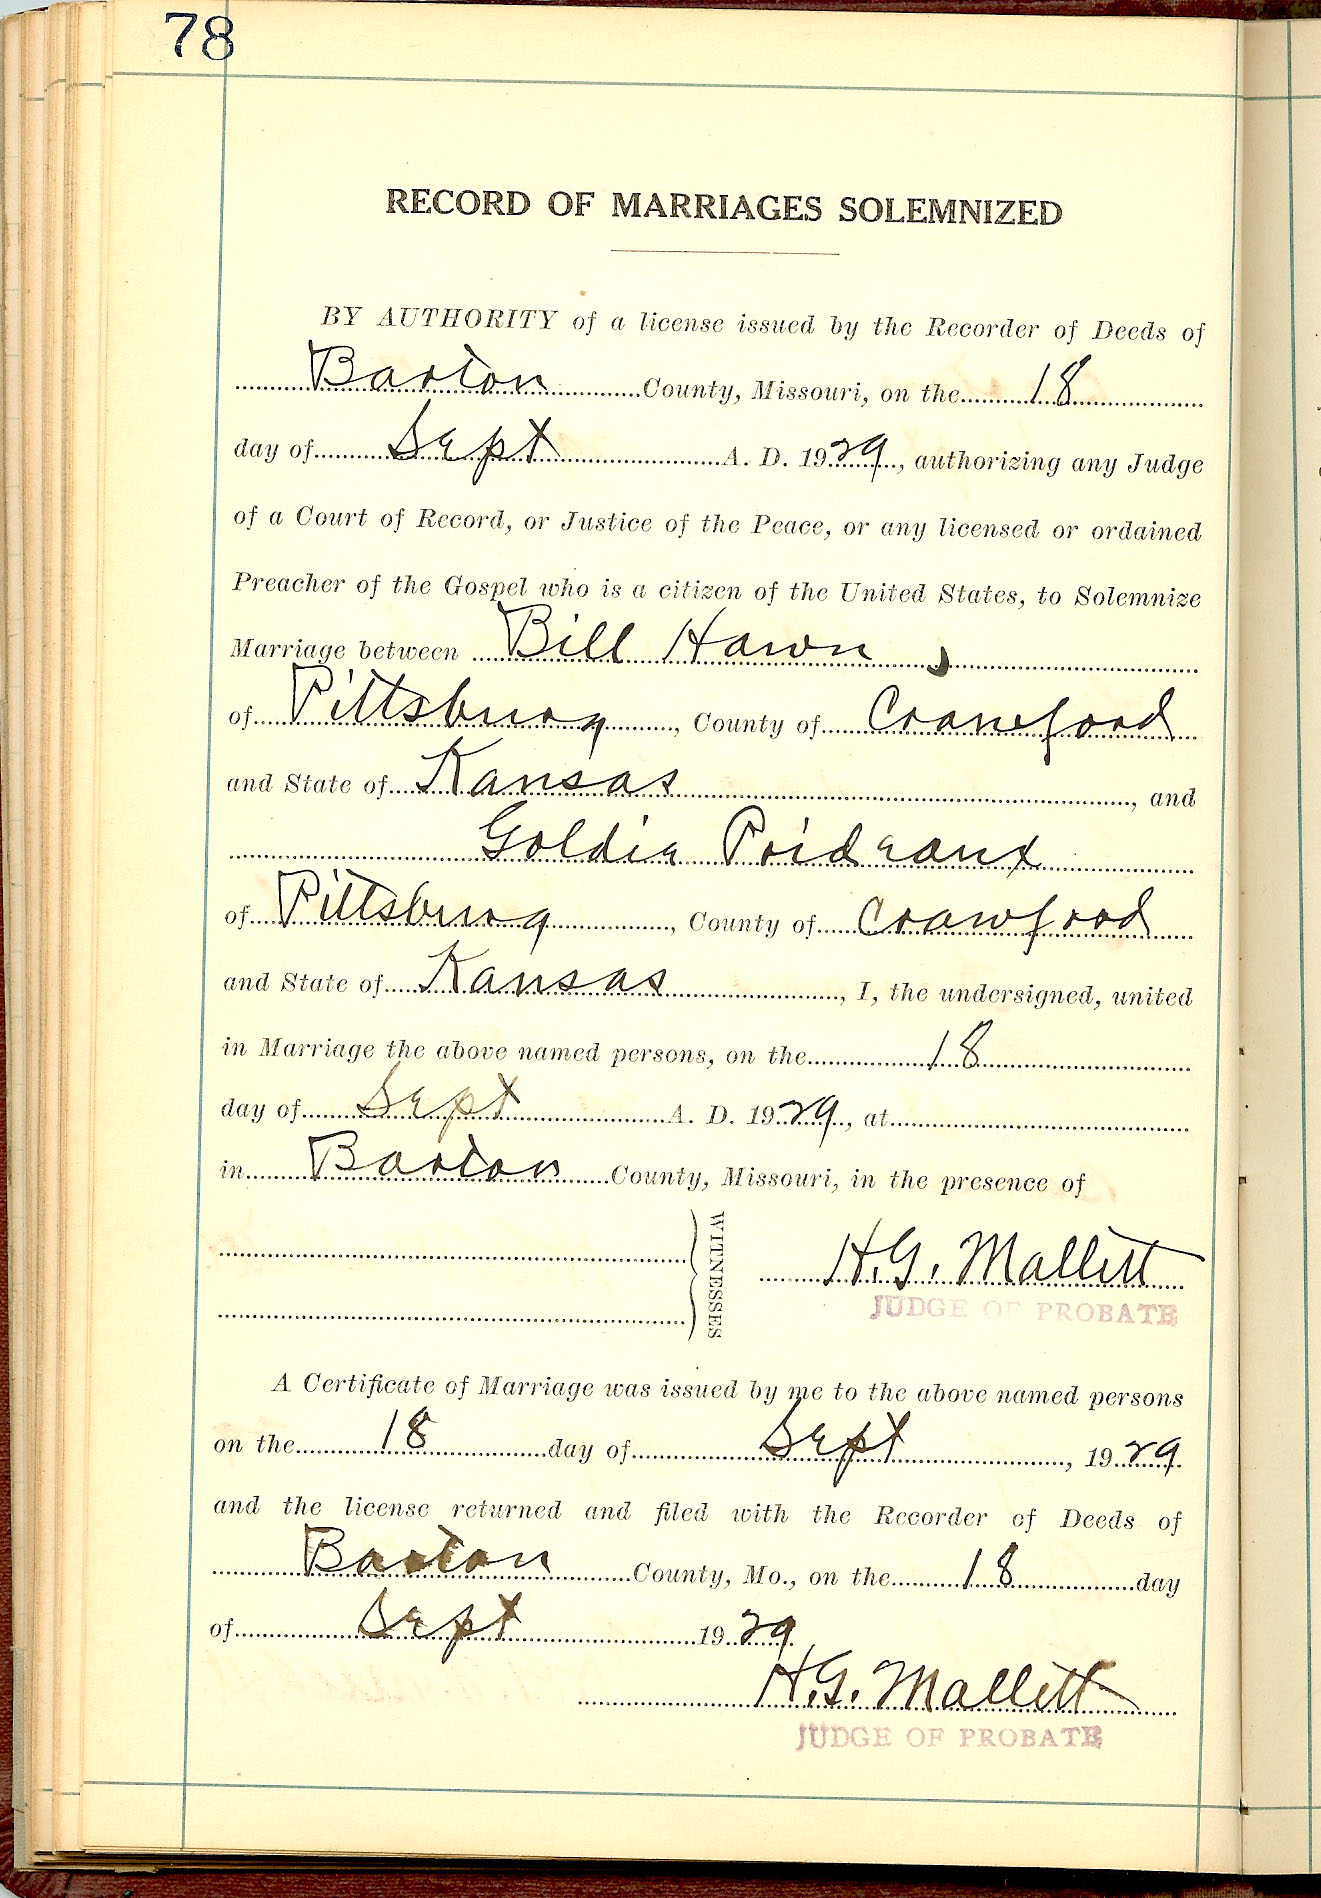 78
RECORD OF MARRIAGES SOLEMNIZED
BY AUTHORITY of a license issued by the Recorder of Deeds of
Barton County, Missouri, on the 18
day of Sept A. D. 1929, authorizing any Judge
of a Court of Record, or Justice of the Peace, or any licensed or ordained
Preacher of the Gospel who is a citizen of the United States, to Solemnize
Marriage between Bill Hawn
of Pittsburg, County of Crawford
and State of Kansas, and
Goldie Prideaux
of Pittsburg, County of Crawford
and State of Kansas, I, the undersigned, united
in Marriage the above named persons, on the 18
day of Sept A. D. 1929, at
in Barton County, Missouri, in the presence of
WITNESSES
H.G. Mallett
JUDGE OF PROBATE
A Certificate of Marriage was issued by me to the above named persons
on the 18 day of Sept, 1929
and the license returned and filed with the Recorder of Deeds of
Barton County, Mo., on the 18 day
of Sept 1929
H.G. Mallett
JUDGE OF PROBATE